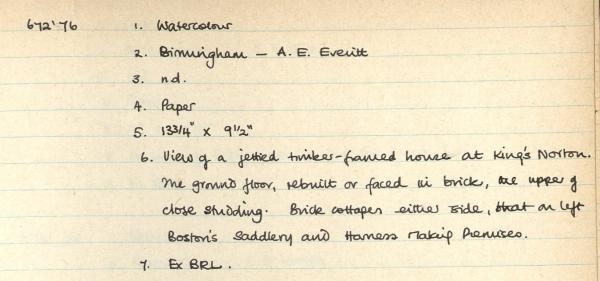 672'76 1. Watercolour
2. Birmingham – A. E. Everitt
3. n.d.
4. Paper
5. 13 3/4" x 9 1/2"
6. View of a jettied timber-framed house at King's Norton.
The ground floor, rebuilt or faced in brick, the upper of
close studding. Brick cottages either side, that on left
Boston's Saddlery and Harness Making Premises.
7. Ex BRL.